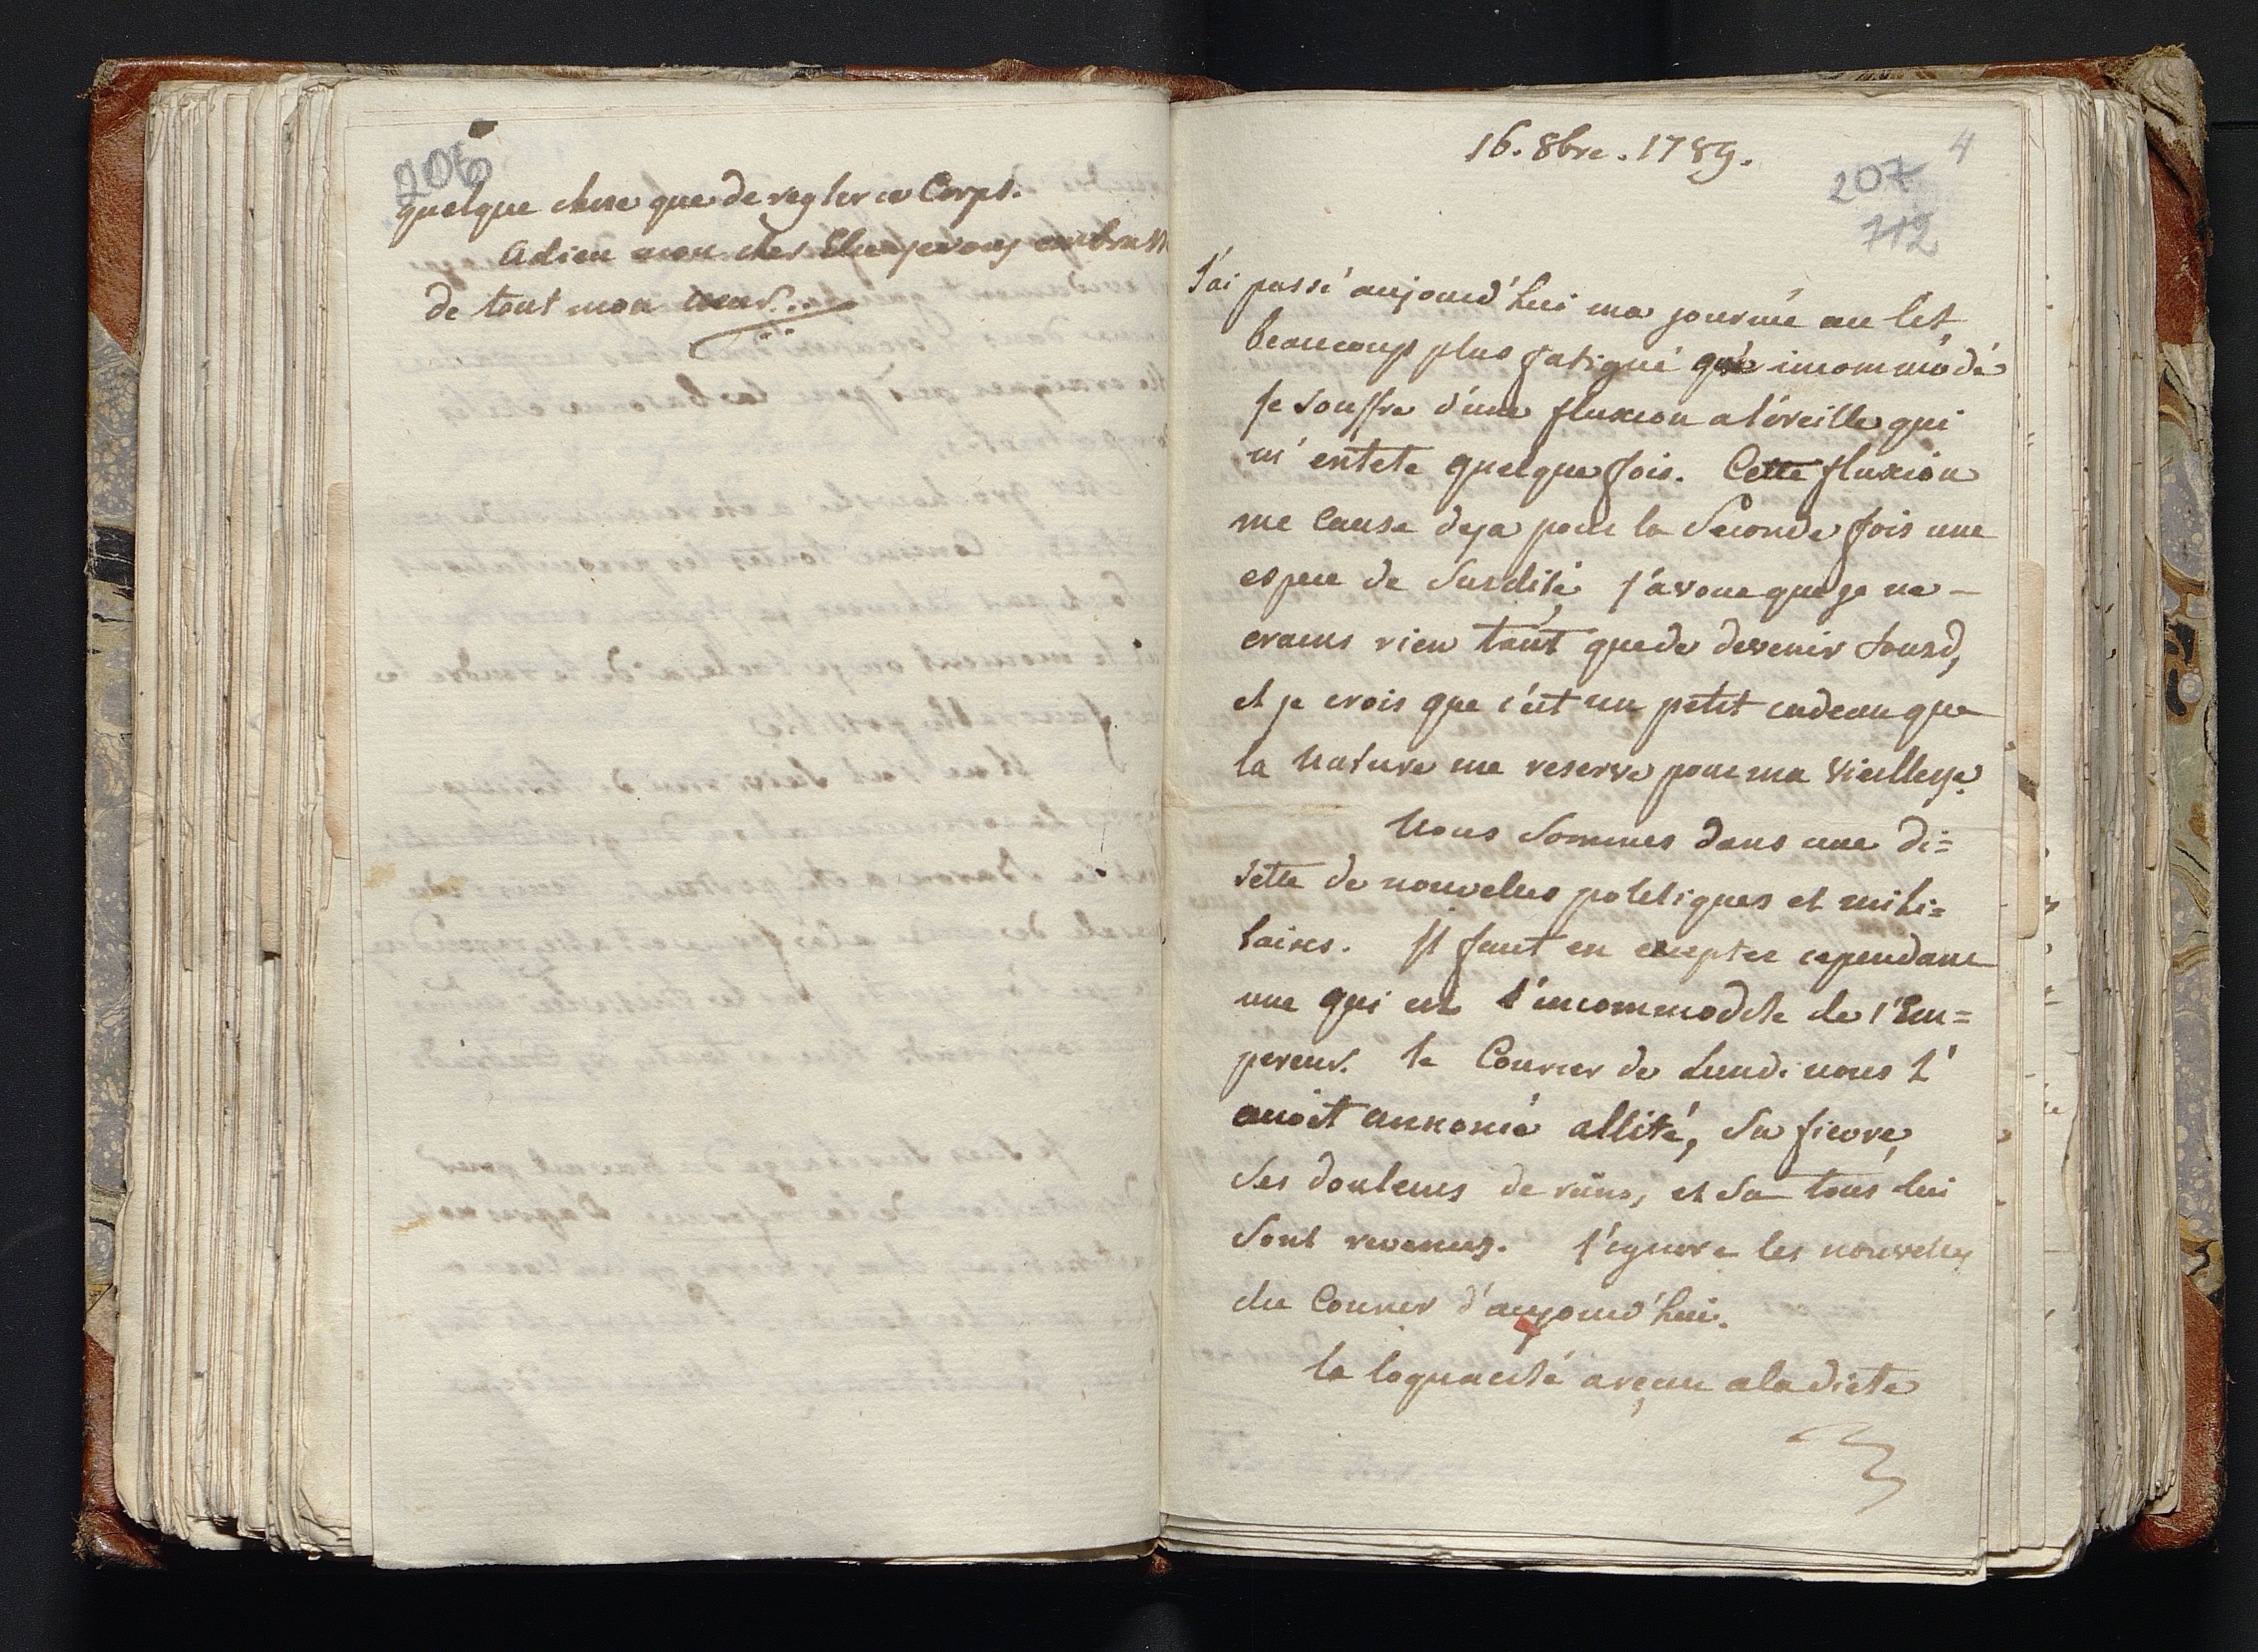 206
quelque chose que de regler ce Corps.
Adieu mon cher je vous embrasse
de tout mon coeur...
16. 8bre. 1789.
4
207
712
J'ai passé aujourd'hui ma journée au lit
beaucoup plus fatigué que incommodé
je souffre d'une fluxion a l'oreille qui
m'entete quelque fois. Cette fluxion
me cause deja pour la Seconde fois une
espece de Surdité, j'avoue que je ne -
crains rien tant que de devenir Sourd,
et je crois que c'est un petit cadeau que
la Nature me reserve pour ma Vieillesse.
Nous Sommes dans une di=
sette de nouvelles politiques et mili=
taires. Il faut en excepter cependant
une qui est l'incommodité de l'Em=
pereur. le Courier de Lundi nous l'
avoit annoncé allité, Sa fievre,
Ses douleurs de reins, et Sa tous lui
Sont revenus. j'ignore les nouvelles
du Courier d'aujourd'hui.
la loquacité a la diete